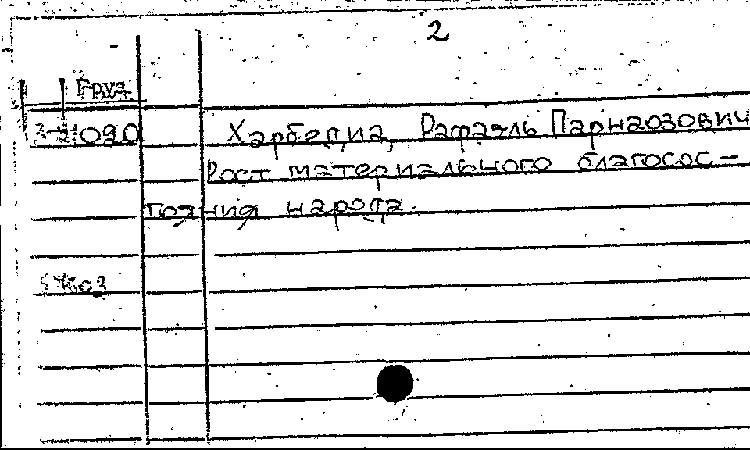 2
Груз.
Харбедиа, Рафаэль Парнаозович
Рост материального благосос-
тояния народа.